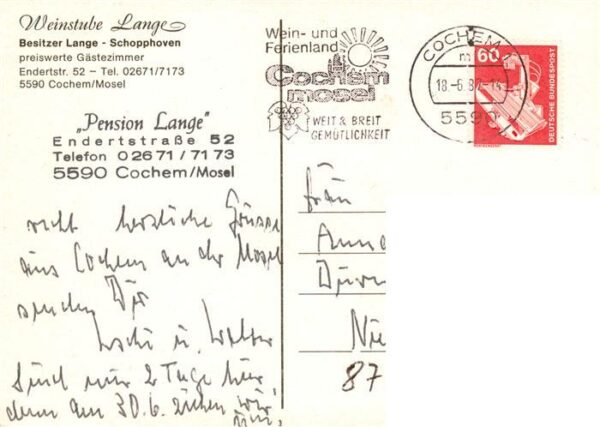 Weinstube Lange
Besitzer Lange - Schopphoven
preiswerte Gästezimmer
Endertstr. 52 - Tel. 02671/7173
5590 Cochem/Mosel
„Pension Lange"
Endertstraße 52
Telefon 02671/7173
5590 Cochem/Mosel
recht herzliche Grüsse
aus Cochem an der Mosel
senden Dir
u. Walter
Sind nur 2 Tage hier
denn am 30.6. ziehen wir
um.
Wein- und
Ferienland
Cochem
mosel
WEIT & BREIT
GEMÜTLICHKEIT
COCHEM
m
18.-6.87.-14
5590
60
DEUTSCHE BUNDESPOST
Frau
Anne
Nie
87